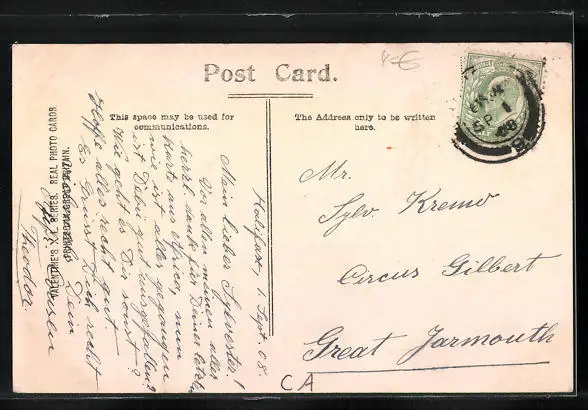 Post Card.
4€
This space may be used for
communications.
The Address only to be written
here.
VALENTINE'S X.L. SERIES. REAL PHOTO CARDS
PRINTED IN GREAT BRITAIN.
Halifax, 1. Sept. 08.
Mein lieber Sylvester!
Vor allem meinen aller
herzl. dank für Deine letzte
Karte aus Africa, nun
wie ist alles gegangen
ist Debu gut ausgefallen?
Wie geht es Dir sonst?
Hoffe alles recht gut.
Es Grüsst Dich recht
Dein
Theodor.
Mr.
Sylv. Kremo
Circus Gilbert
Great Jarmouth
CA